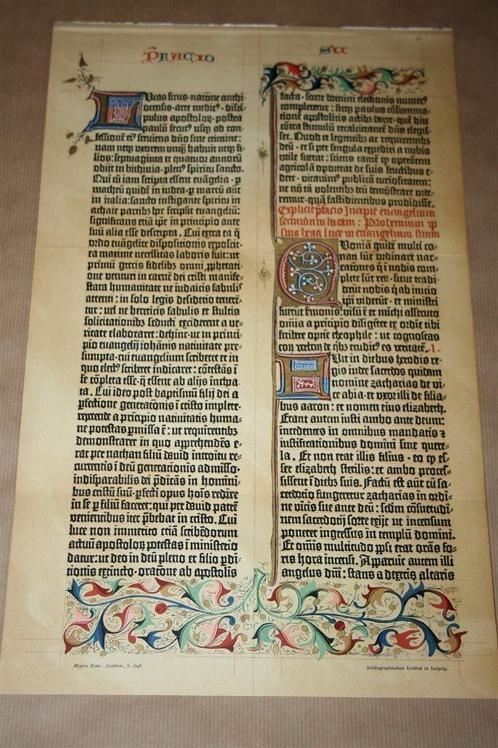 Pfacio
Lucas sirus · natione anthi
ocensis · arte medicus · disci
pulus apostolorum · postea
paulum secutus usque ad con
fessionem eius serviens domino sine crimine:
nam neque uxorem unquam habuit neque fi
lios: septuaginta et quatuor annorum
obiit in bithinia · plenus spiritu sancto ·
Qui cum iam scripta essent evangelia · per
matheum quidem in iudea · per marcum autem
in italia: sancto instigante spiritu in
achaie partibus hoc scripsit evangelium:
significans etiam ipse in principio ante
suum alia esse descripta · Cui extra ea que
ordo evangelice dispositionis exposcit
ea maxime necessitas laboris fuit: ut
primum grecis fidelibus omni prophetati
one venturi in carnem dei cristi manife
stata humanitate ne iudaicis fabulis
attenti: in solo legis desiderio tene
rentur: vel ne hereticis fabulis et stultis
sollicitationibus seducti excideret a ve
ritate elaboraret: dehinc ut in princi
pio evangelii iohannis nativitate pre
sumpta · cui evangelium scriberet et in
quo electus scriberet indicaret: contestans
se completa esse · que essent ab aliis incho
ata · Cui ideo post baptismum filii dei a
perfectione generationis in cristo implete ·
repetende a principio nativitatis huma
ne potestas permissa est: ut requirentibus
demonstraret in quo apprehendens e
rat per nathan filium david introitu re
currentis in deum generationis admisso ·
indisparabilis dei predicans in hominibus
cristum suum · perfecti opus hominis redire
in se per filium faceret: qui per david patrem
venientibus iter prebebat in cristo · Cui
luce non immerito etiam scribendorum
actuum apostolorum potestas in ministerio
datur: ut deo in deum pleno et filio prodi
tionis extincto · oratione ab apostolis
facta · sorte domini electionis numerus
compleretur: sicque paulus consumma
tionem apostolicis actibus daret · quem diu
contra stimulum recalcitrantem dominus elegis
set · Quod et legentibus ac requirentibus
deum · et si per singula expediri a nobis
utile fuerat: sciens tamen quod operantem
agricolam oporteat de suis fructibus
edere · vitavimus publicam curiositatem:
ne non tam volentibus deum demonstrare vide
remur · quam fastidientibus prodidisse.
Explicit prefacio Incipit evangelium
secundum lucam: Prohemium ip
sius beati luce in evangelium suum
Quoniam quidem multi co
nati sunt ordinare nar
rationem que in nobis com
plete sunt rerum · sicut tradi
derunt nobis qui ab inicio
ipsi viderunt · et ministri
fuerunt sermonis: visum est et michi assecuto
omnia a principio diligenter ex ordine tibi
scribere optime theophile: ut cognoscas
eorum verborum de quibus eruditus es veritatem · I.
Fuit in diebus herodis re
gis iude sacerdos quidam
nomine zacharias de vi
ce abia · et uxor illi de filia
bus aaron: et nomen eius elizabeth.
Erant autem iusti ambo ante deum:
incedentes in omnibus mandatis et
iustificationibus domini sine quere
la. Et non erat illis filius · eo quod es
set elizabeth sterilis: et ambo proces
sissent in diebus suis. Factum est autem cum sa
cerdotio fungeretur zacharias in ordi
ne vicis sue ante deum: secundum consuetudi
nem sacerdotii sorte exiit ut incensum
poneret ingressus in templum domini.
Et omnis multitudo populi erat orans fo
ris hora incensi. Apparuit autem illi
angelus domini: stans a dextris altaris
Meyers Konv.-Lexikon, 5. Aufl.
Bibliographisches Institut in Leipzig.